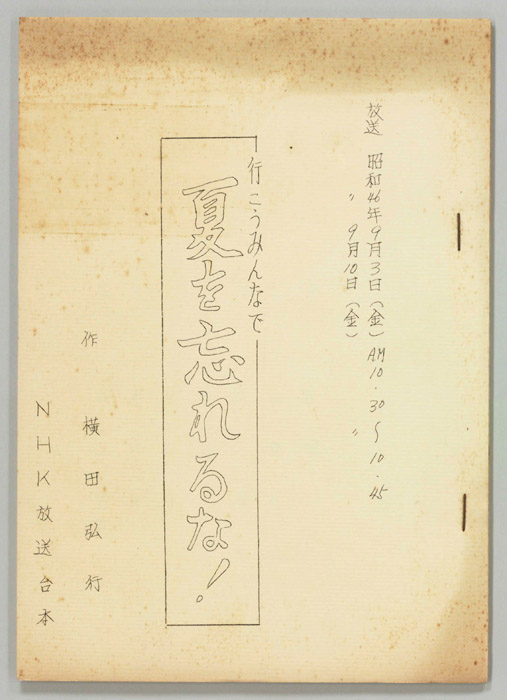 放送 昭和46年9月3日（金）AM10.30〜10.45
〃 9月10日（金） 〃
行こうみんなで
夏を忘れるな！
作 横田弘行
NHK放送台本